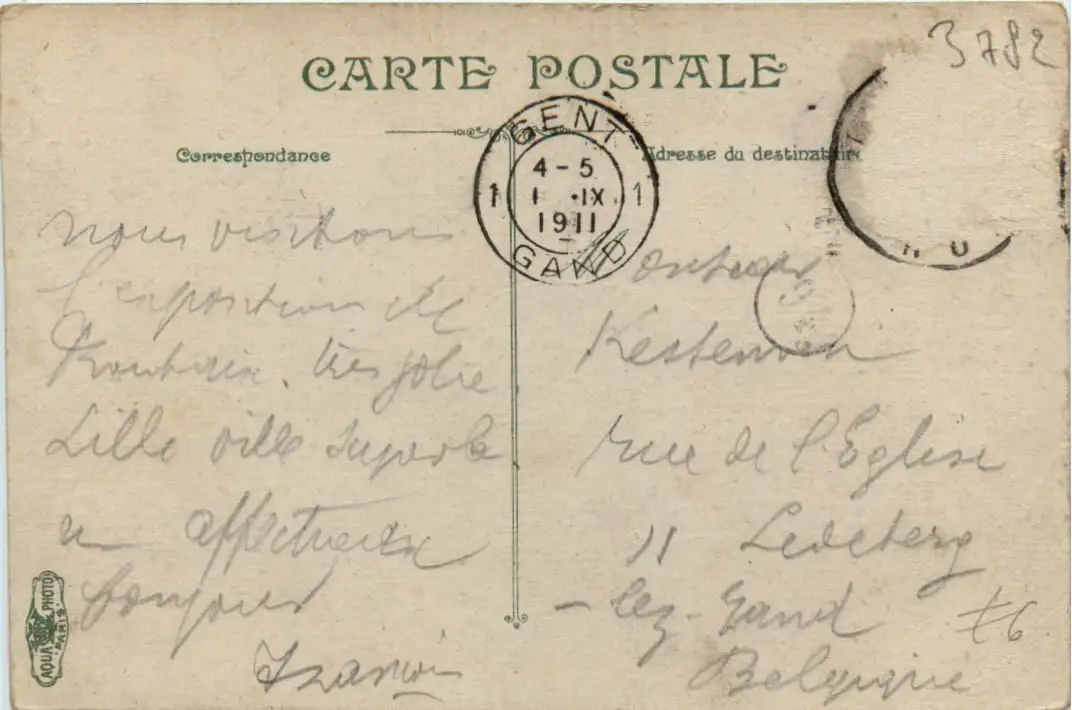 3782
CARTE POSTALE
Correspondance
Adresse du destinataire
GENT
4-5
1 1 IX 1
1911
GAND
nous visitons
l'exposition de
Roubaix. très jolie
Lille ville superbe
un affectueux
bonjour
François
Kestemon
rue de l'Eglise
11 Ledeberg
- lez-Gand
Belgique
£6
AQUA PHOTO
PARIS